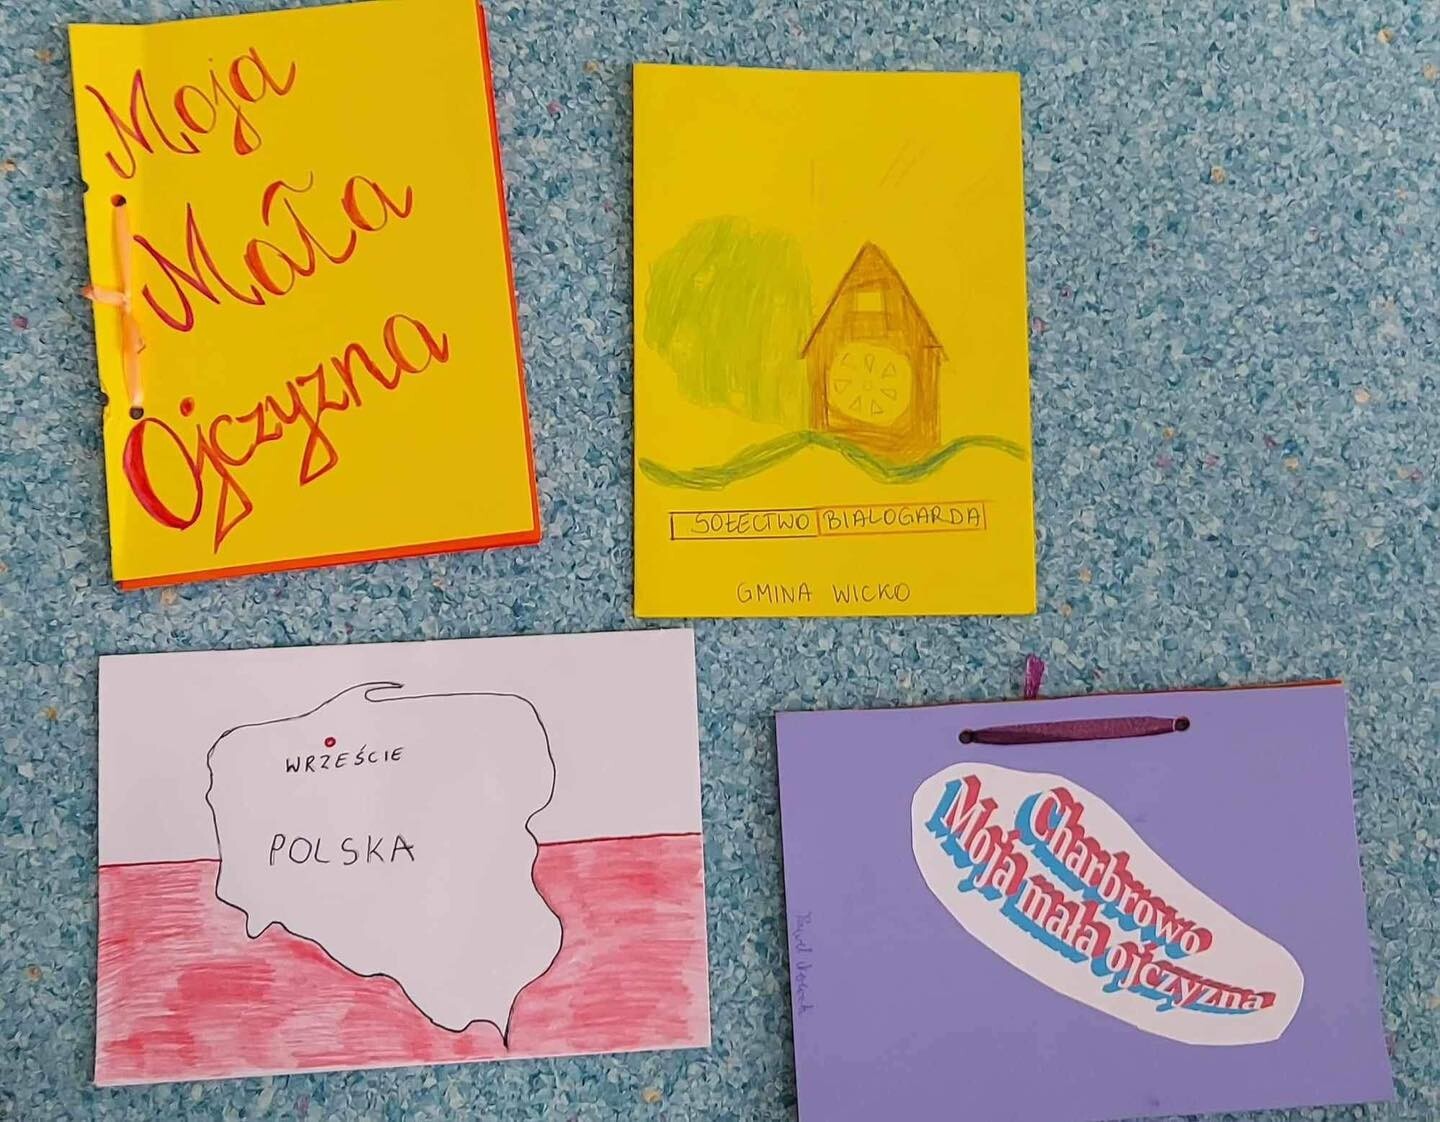 Moja
Mała
Ojczyzna
SOŁECTWO BIAŁOGARDA
GMINA WICKO
WRZEŚCIE
POLSKA
Charbrowo
Moja mała ojczyzna